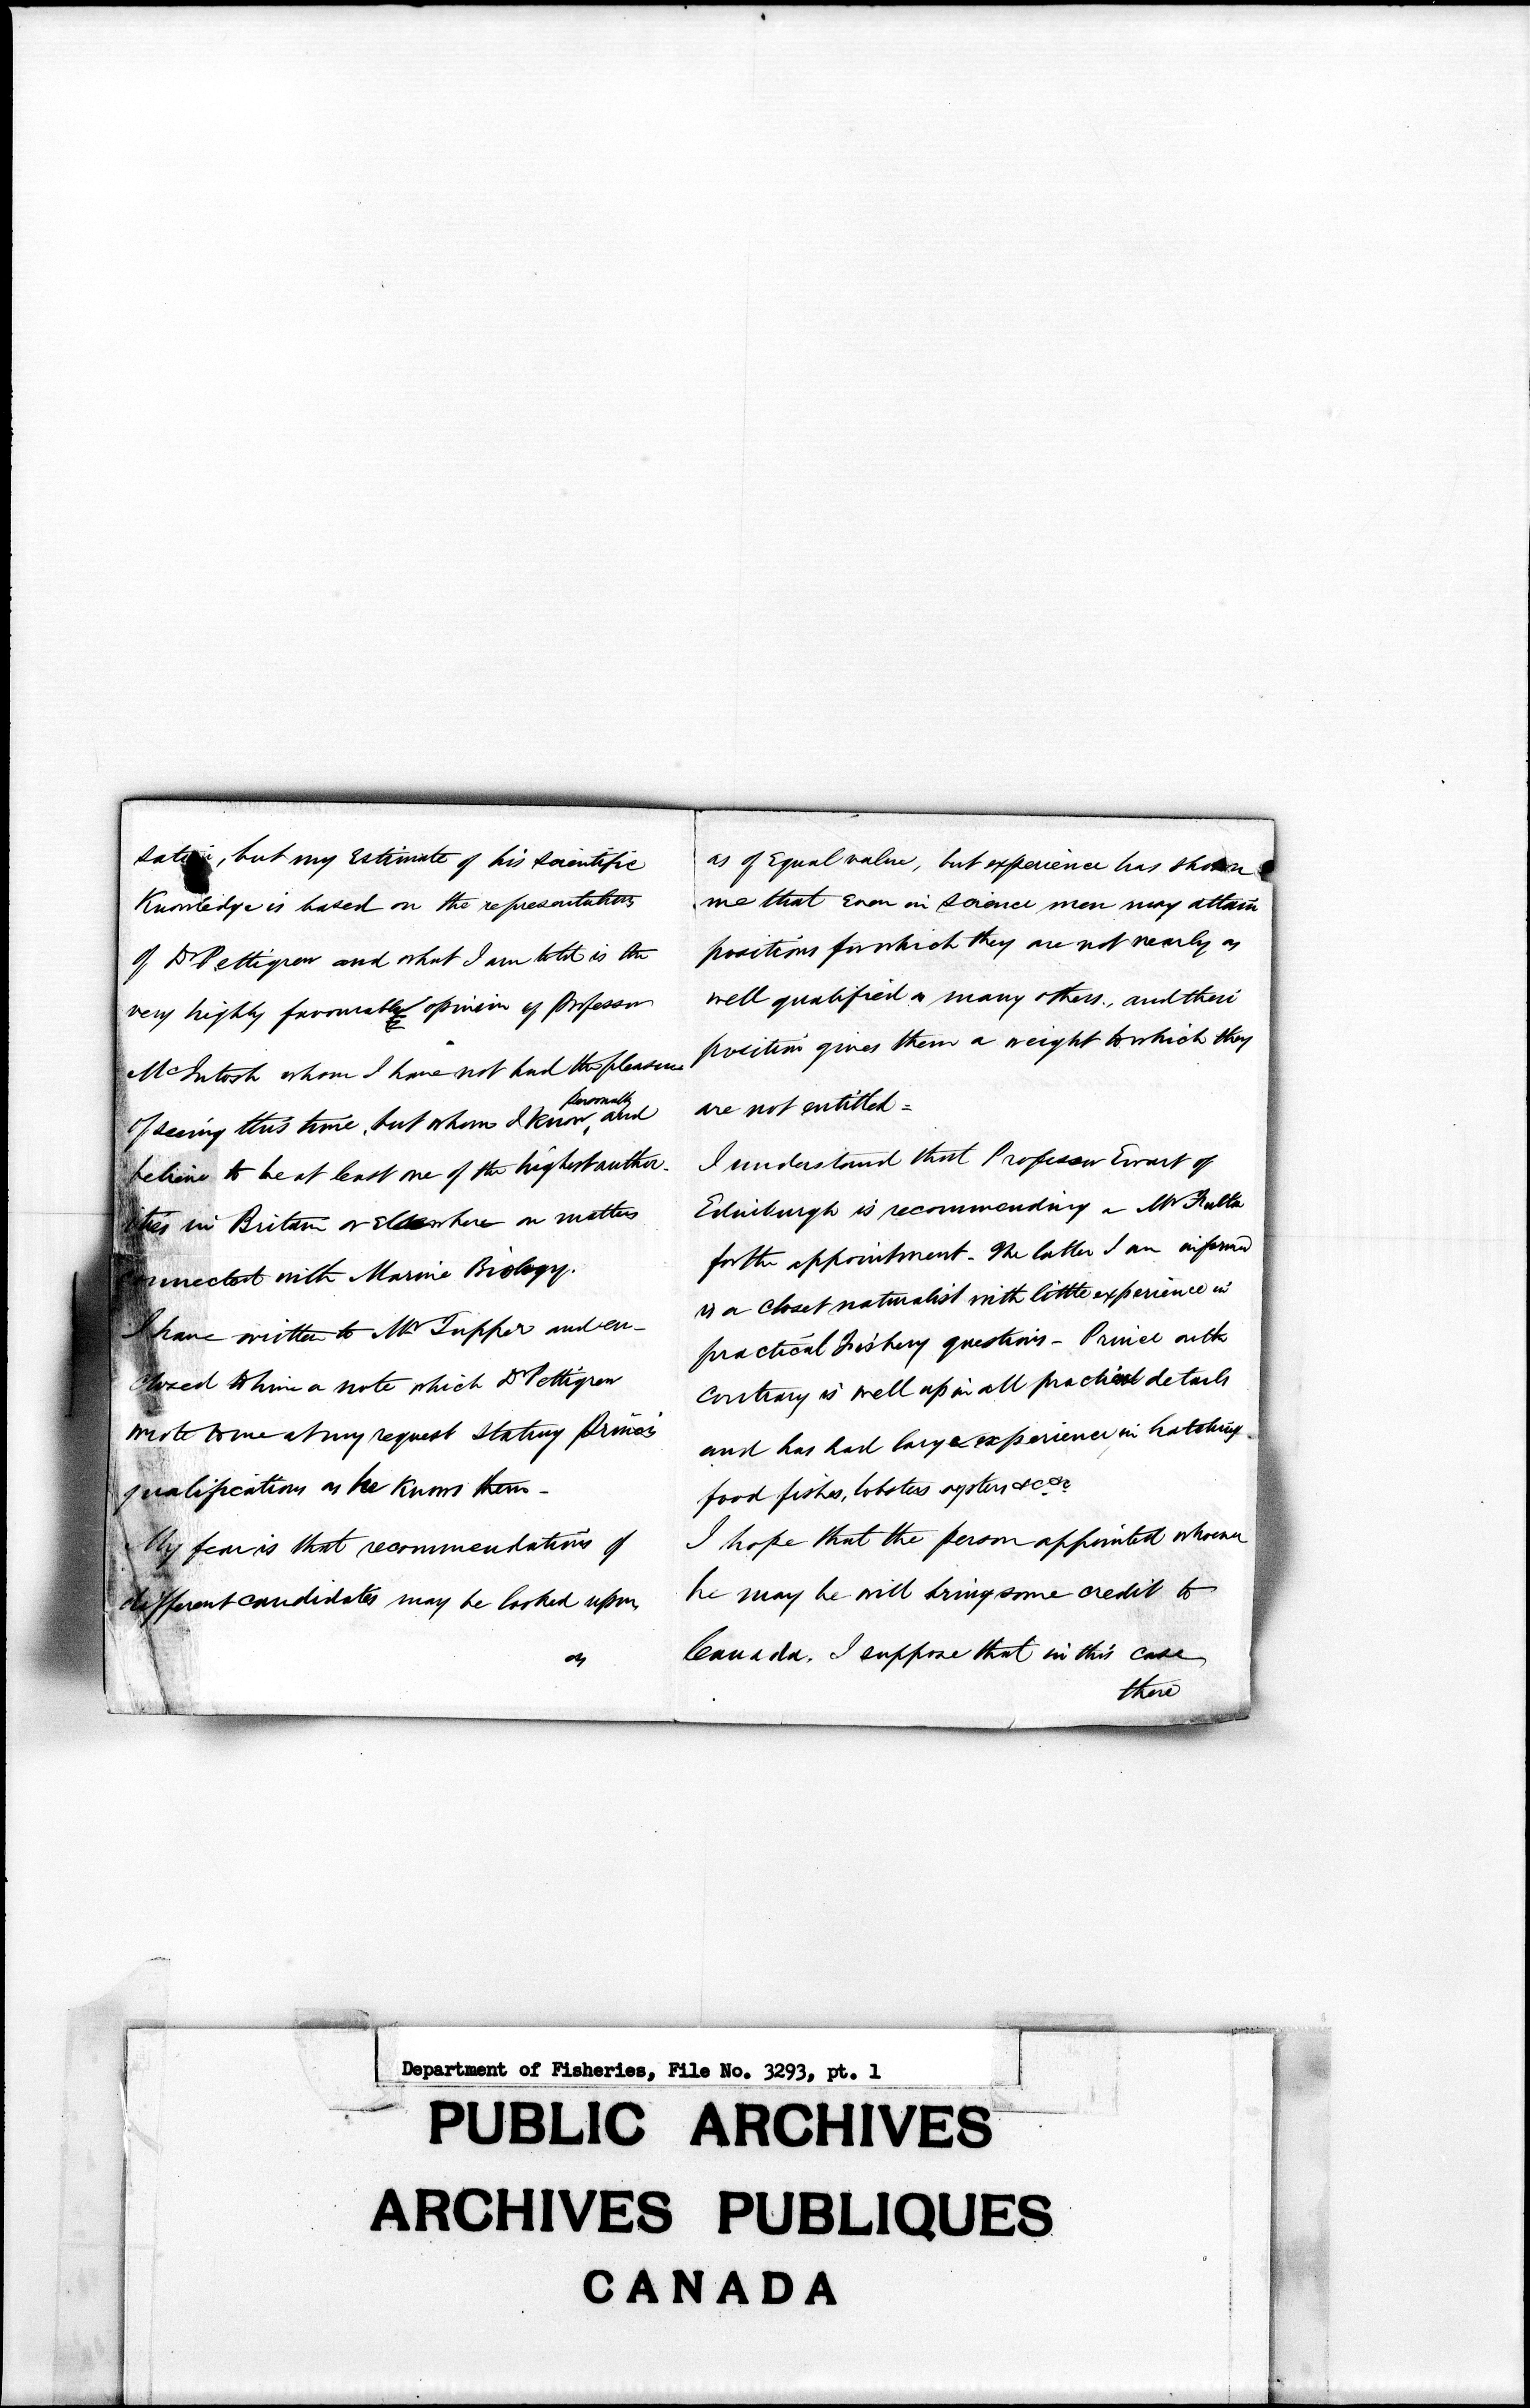 but my Estimate of his scientific
Knowledge is based on the representations
of Dr Pettigrew and what I am told is the
very highly favourable opinion of Professor
McIntosh whom I have not had the pleasure
of seeing this time, but whom I know, personally and
believe to be at least one of the highest author-
ities in Britain or Elsewhere on matters
connected with Marine Biology.
I have written to Mr Tupper and en-
closed to him a note which Dr Pettigrew
wrote to me at my request stating Prince's
qualifications as he knows them -
My fear is that recommendations of
different candidates may be looked upon
as
as of Equal value, but experience has shown
me that Even in Science men may attain
positions for which they are not nearly as
well qualified as many others, and their
position gives them a weight to which they
are not entitled =
I understand that Professor Ewart of
Edinburgh is recommending a Mr
for the appointment - The latter I am informed
is a closet naturalist with little experience in
practical Fishery questions - Prince on the
contrary is well up in all practical details
and has had large experience in hatching
food fishes, lobsters oysters &c &c
I hope that the person appointed whoever
he may be will bring some credit to
Canada. I suppose that in this case
there
Department of Fisheries, File No. 3293, pt. 1
PUBLIC ARCHIVES
ARCHIVES PUBLIQUES
CANADA